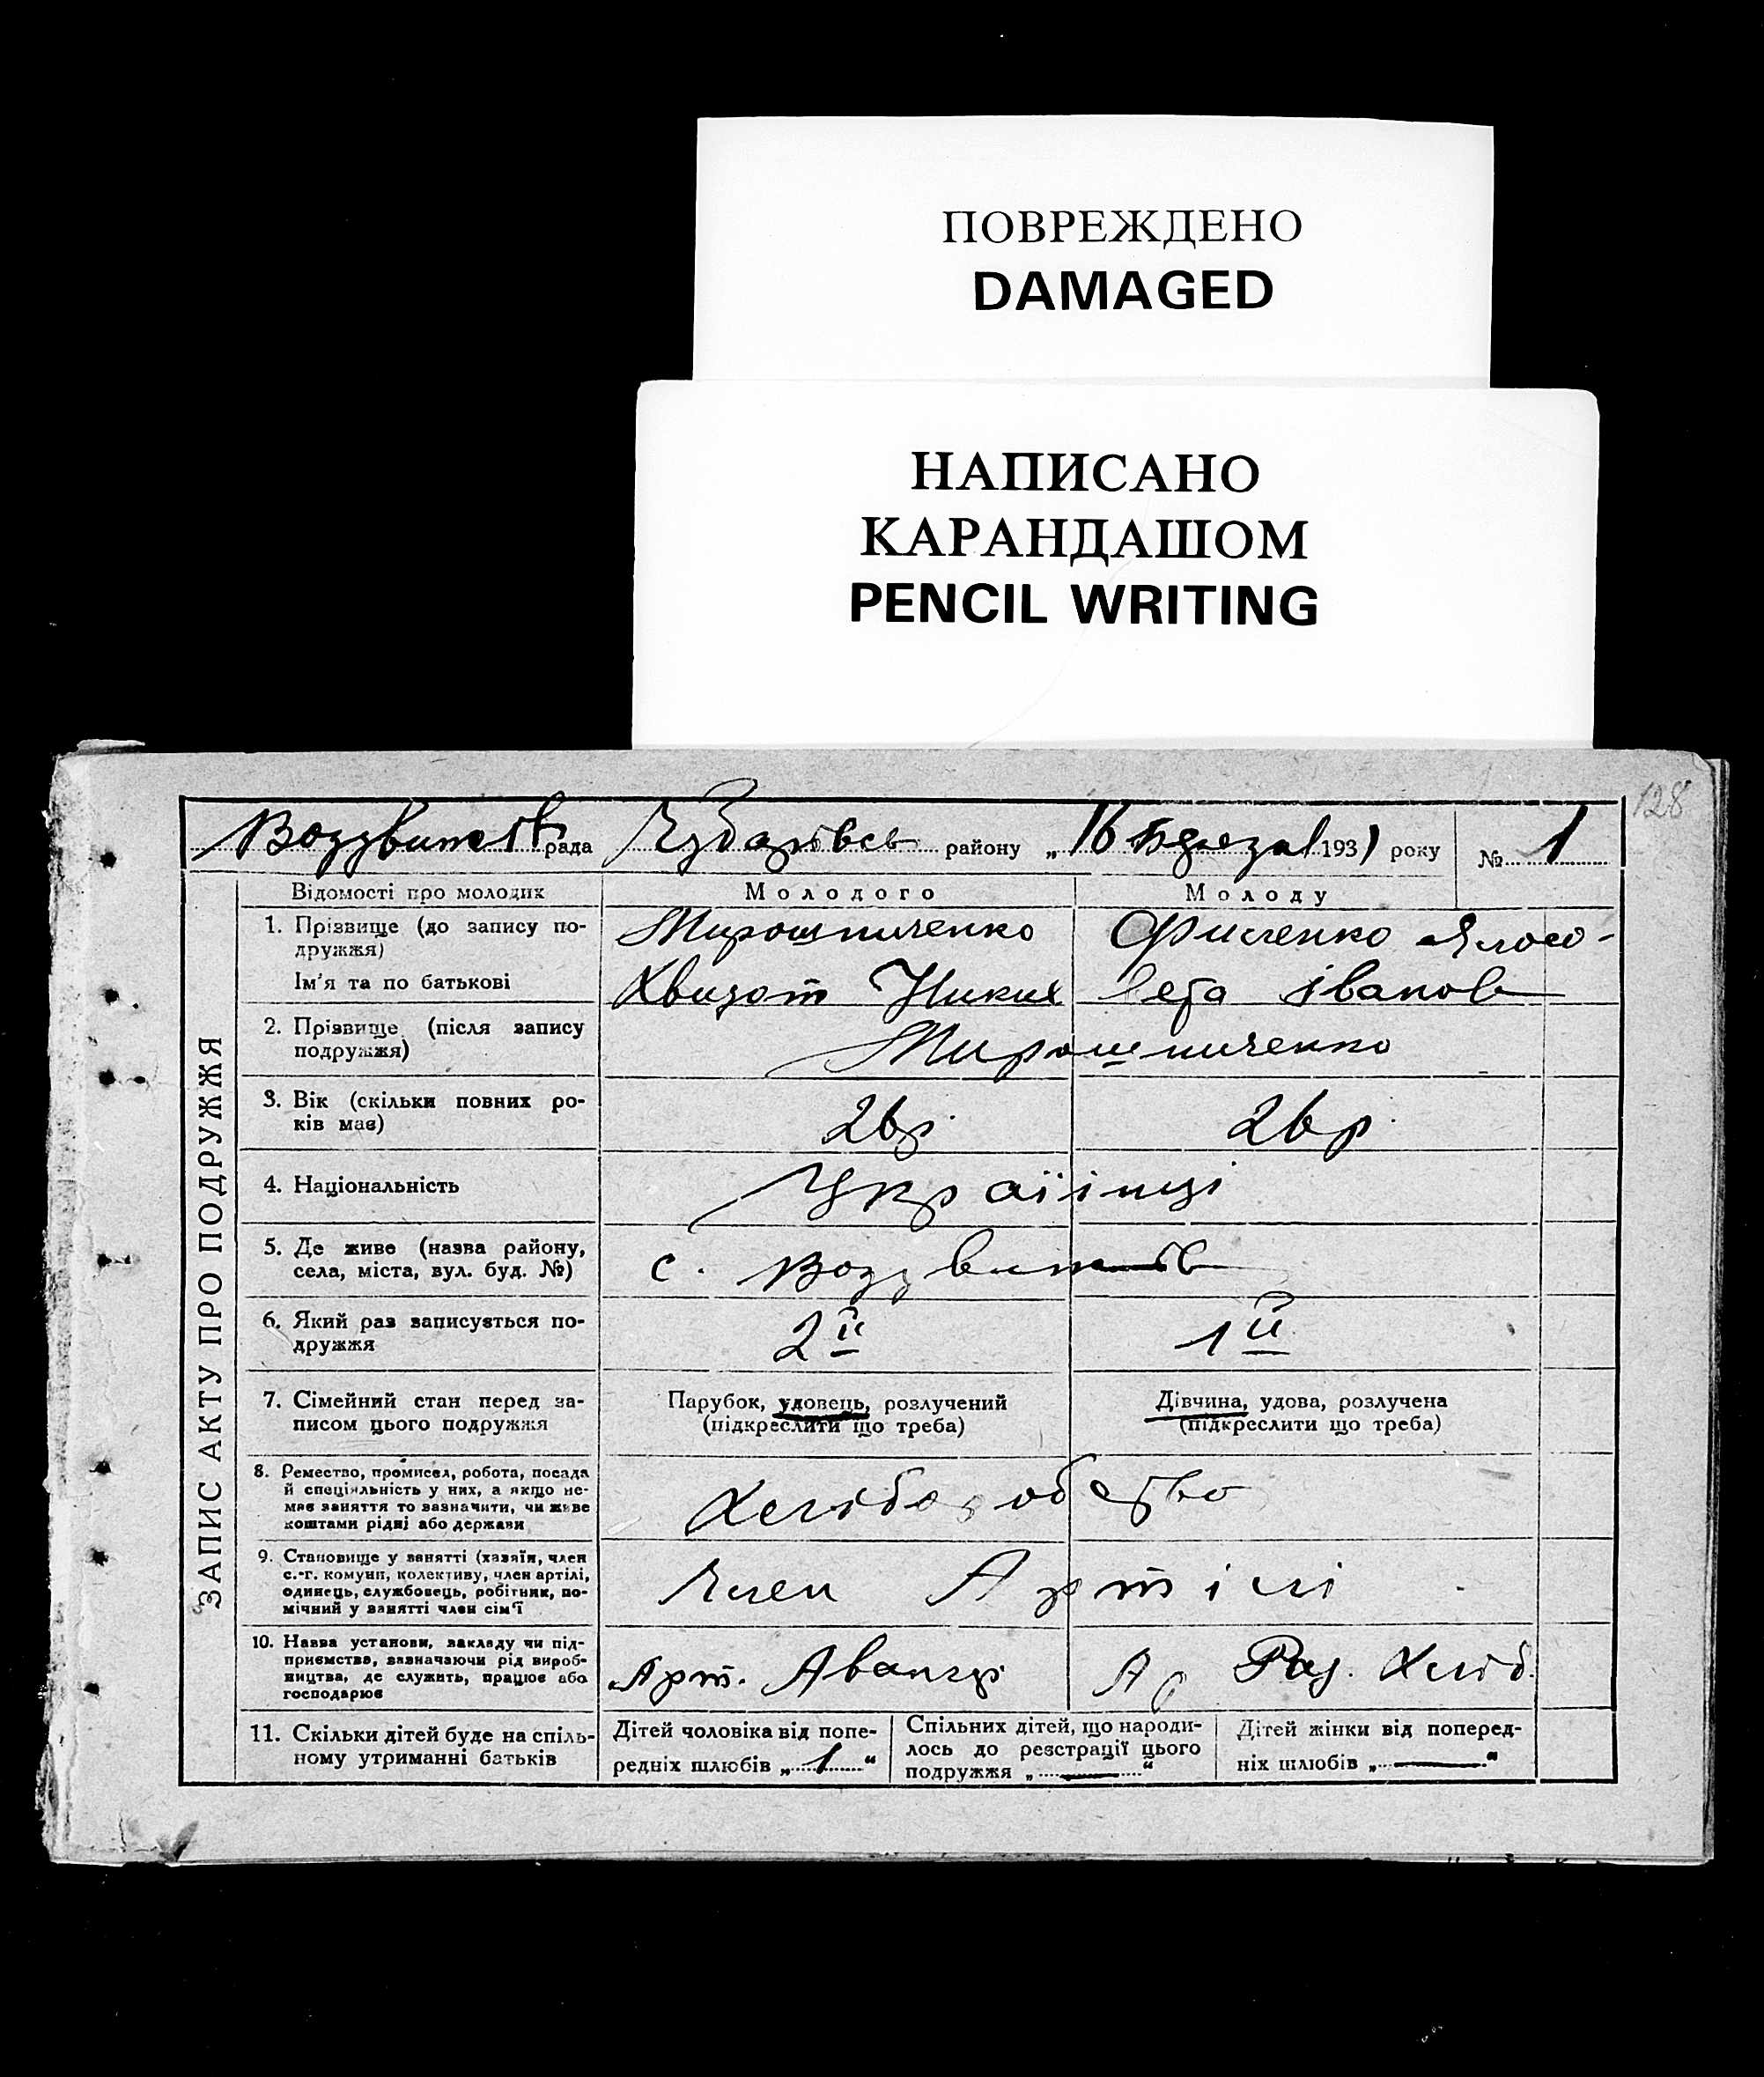 ПОВРЕЖДЕНО
DAMAGED
НАПИСАНО
КАРАНДАШОМ
PENCIL WRITING
128
рада району „16 березня 1931 року № 1
ЗАПИС АКТУ ПРО ПОДРУЖЖЯ
Відомості про молодих Молодого Молоду
1. Прізвище (до запису по-
дружжя)
Мирошниченко
Ім'я та по батькові
Іванов
2. Прізвище (після запису
подружжя)
Мирошниченко
3. Вік (скільки повних ро-
ків має)
26р. 26р.
4. Національність
Українці
5. Де живе (назва району,
села, міста, вул. буд. №)
с.
6. Який раз записується по-
дружжя
2й 1й
7. Сімейний стан перед за-
писом цього подружжя
Парубок, удовець, розлучений
(підкреслити що треба)
Дівчина, удова, розлучена
(підкреслити що треба)
8. Ремество, промисел, робота, посада
й спеціяльність у них, а якщо не-
має заняття то зазначити, чи живе
коштами рідні або держави
9. Становище у занятті (хазяїн, член
с.-г. комуни, колективу, член артілі,
одинець, службовець, робітник, по-
мічний у занятті член сім'ї
Член Артілі
10. Назва установи, закладу чи під-
приємства, зазначаючи рід вироб-
ництва, де служить, працює або
господарює
Арт. Ар
11. Скільки дітей буде на спіль-
ному утриманні батьків
Дітей чоловіка від попе-
редніх шлюбів „1“
Спільних дітей, що народи-
лось до реєстрації цього
подружжя „—“
Дітей жінки від поперед-
ніх шлюбів „—“